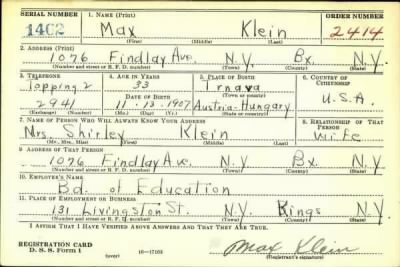 SERIAL NUMBER 1. NAME (Print) ORDER NUMBER
1402 Max Klein 2414
(First) (Middle) (Last)
2. ADDRESS (Print)
1076 Findlay Ave. N.Y. Bx. N.Y.
(Number and street or R. F. D. number) (Town) (County) (State)
3. TELEPHONE 4. AGE IN YEARS 5. PLACE OF BIRTH 6. COUNTRY OF CITIZENSHIP
Topping 2 33 Trnava
DATE OF BIRTH (Town or county)
2941 11-13-1907 Austria-Hungary U.S.A.
(Exchange) (Number) (Mo.) (Day) (Yr.) (State or country)
7. NAME OF PERSON WHO WILL ALWAYS KNOW YOUR ADDRESS 8. RELATIONSHIP OF THAT PERSON
Mrs. Shirley Klein Wife
(Mr., Mrs., Miss) (First) (Middle) (Last)
9. ADDRESS OF THAT PERSON
1076 Findlay Ave. N.Y. Bx. N.Y.
(Number and street or R. F. D. number) (Town) (County) (State)
10. EMPLOYER'S NAME
Bd. of Education
11. PLACE OF EMPLOYMENT OR BUSINESS
131 Livingston St. N.Y. Kings N.Y.
(Number and street or R. F. D. number) (Town) (County) (State)
I AFFIRM THAT I HAVE VERIFIED ABOVE ANSWERS AND THAT THEY ARE TRUE.
REGISTRATION CARD
D. S. S. Form 1 (over) 16-17105 Max Klein
(Registrant's signature)